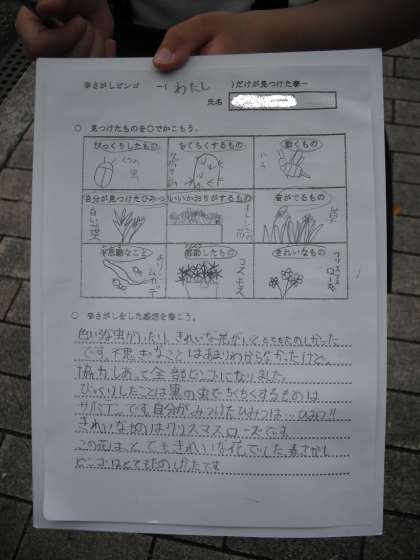 春さがしビンゴ　ー(わたし　)だけが見つけた春ー
氏名
○　見つけたものを○でかこもう。
びっくりしたもの
くろの虫
ちくちくするもの
サボテン
動くもの
ハチ
自分が見つけたひみつ
白い花
いいかおりがするもの
音がでるもの
草
不思議なこと
ムカデ
感動したもの
コスモス
きれいなもの
クリスマスローズ
○　春さがしをした感想を書こう。
色いろな虫がいたり、きれいな花がいて、とてもたのしかった
です。不思ぎなことはあまりわからなかったけど。
協力しあって全部ビンゴになりました。
びっくりしたことは黒の虫でちくちくするものは
サボテンです。自分がみつけたひみつは…ひみつ!!
きれいなものはクリスマスローズです。
この花はとてもきれいな花でした。春さがし
ビンゴはとてもたのしかったです